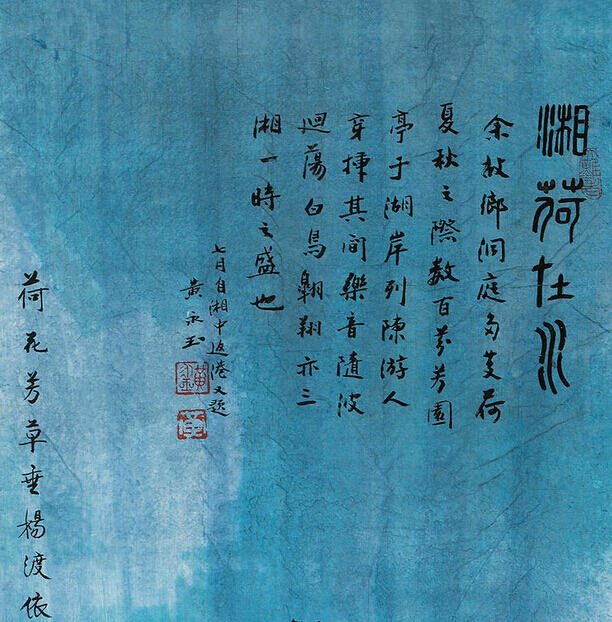 湘荷在水
余故鄉洞庭多芰荷
夏秋之際數百芬芳園
亭于湖岸列陳游人
穿揷其間樂音隨波
迴蕩白鳥翱翔亦三
湘一時之盛也
七月自湘中返港又題
黃永玉
荷花芳草垂楊渡依